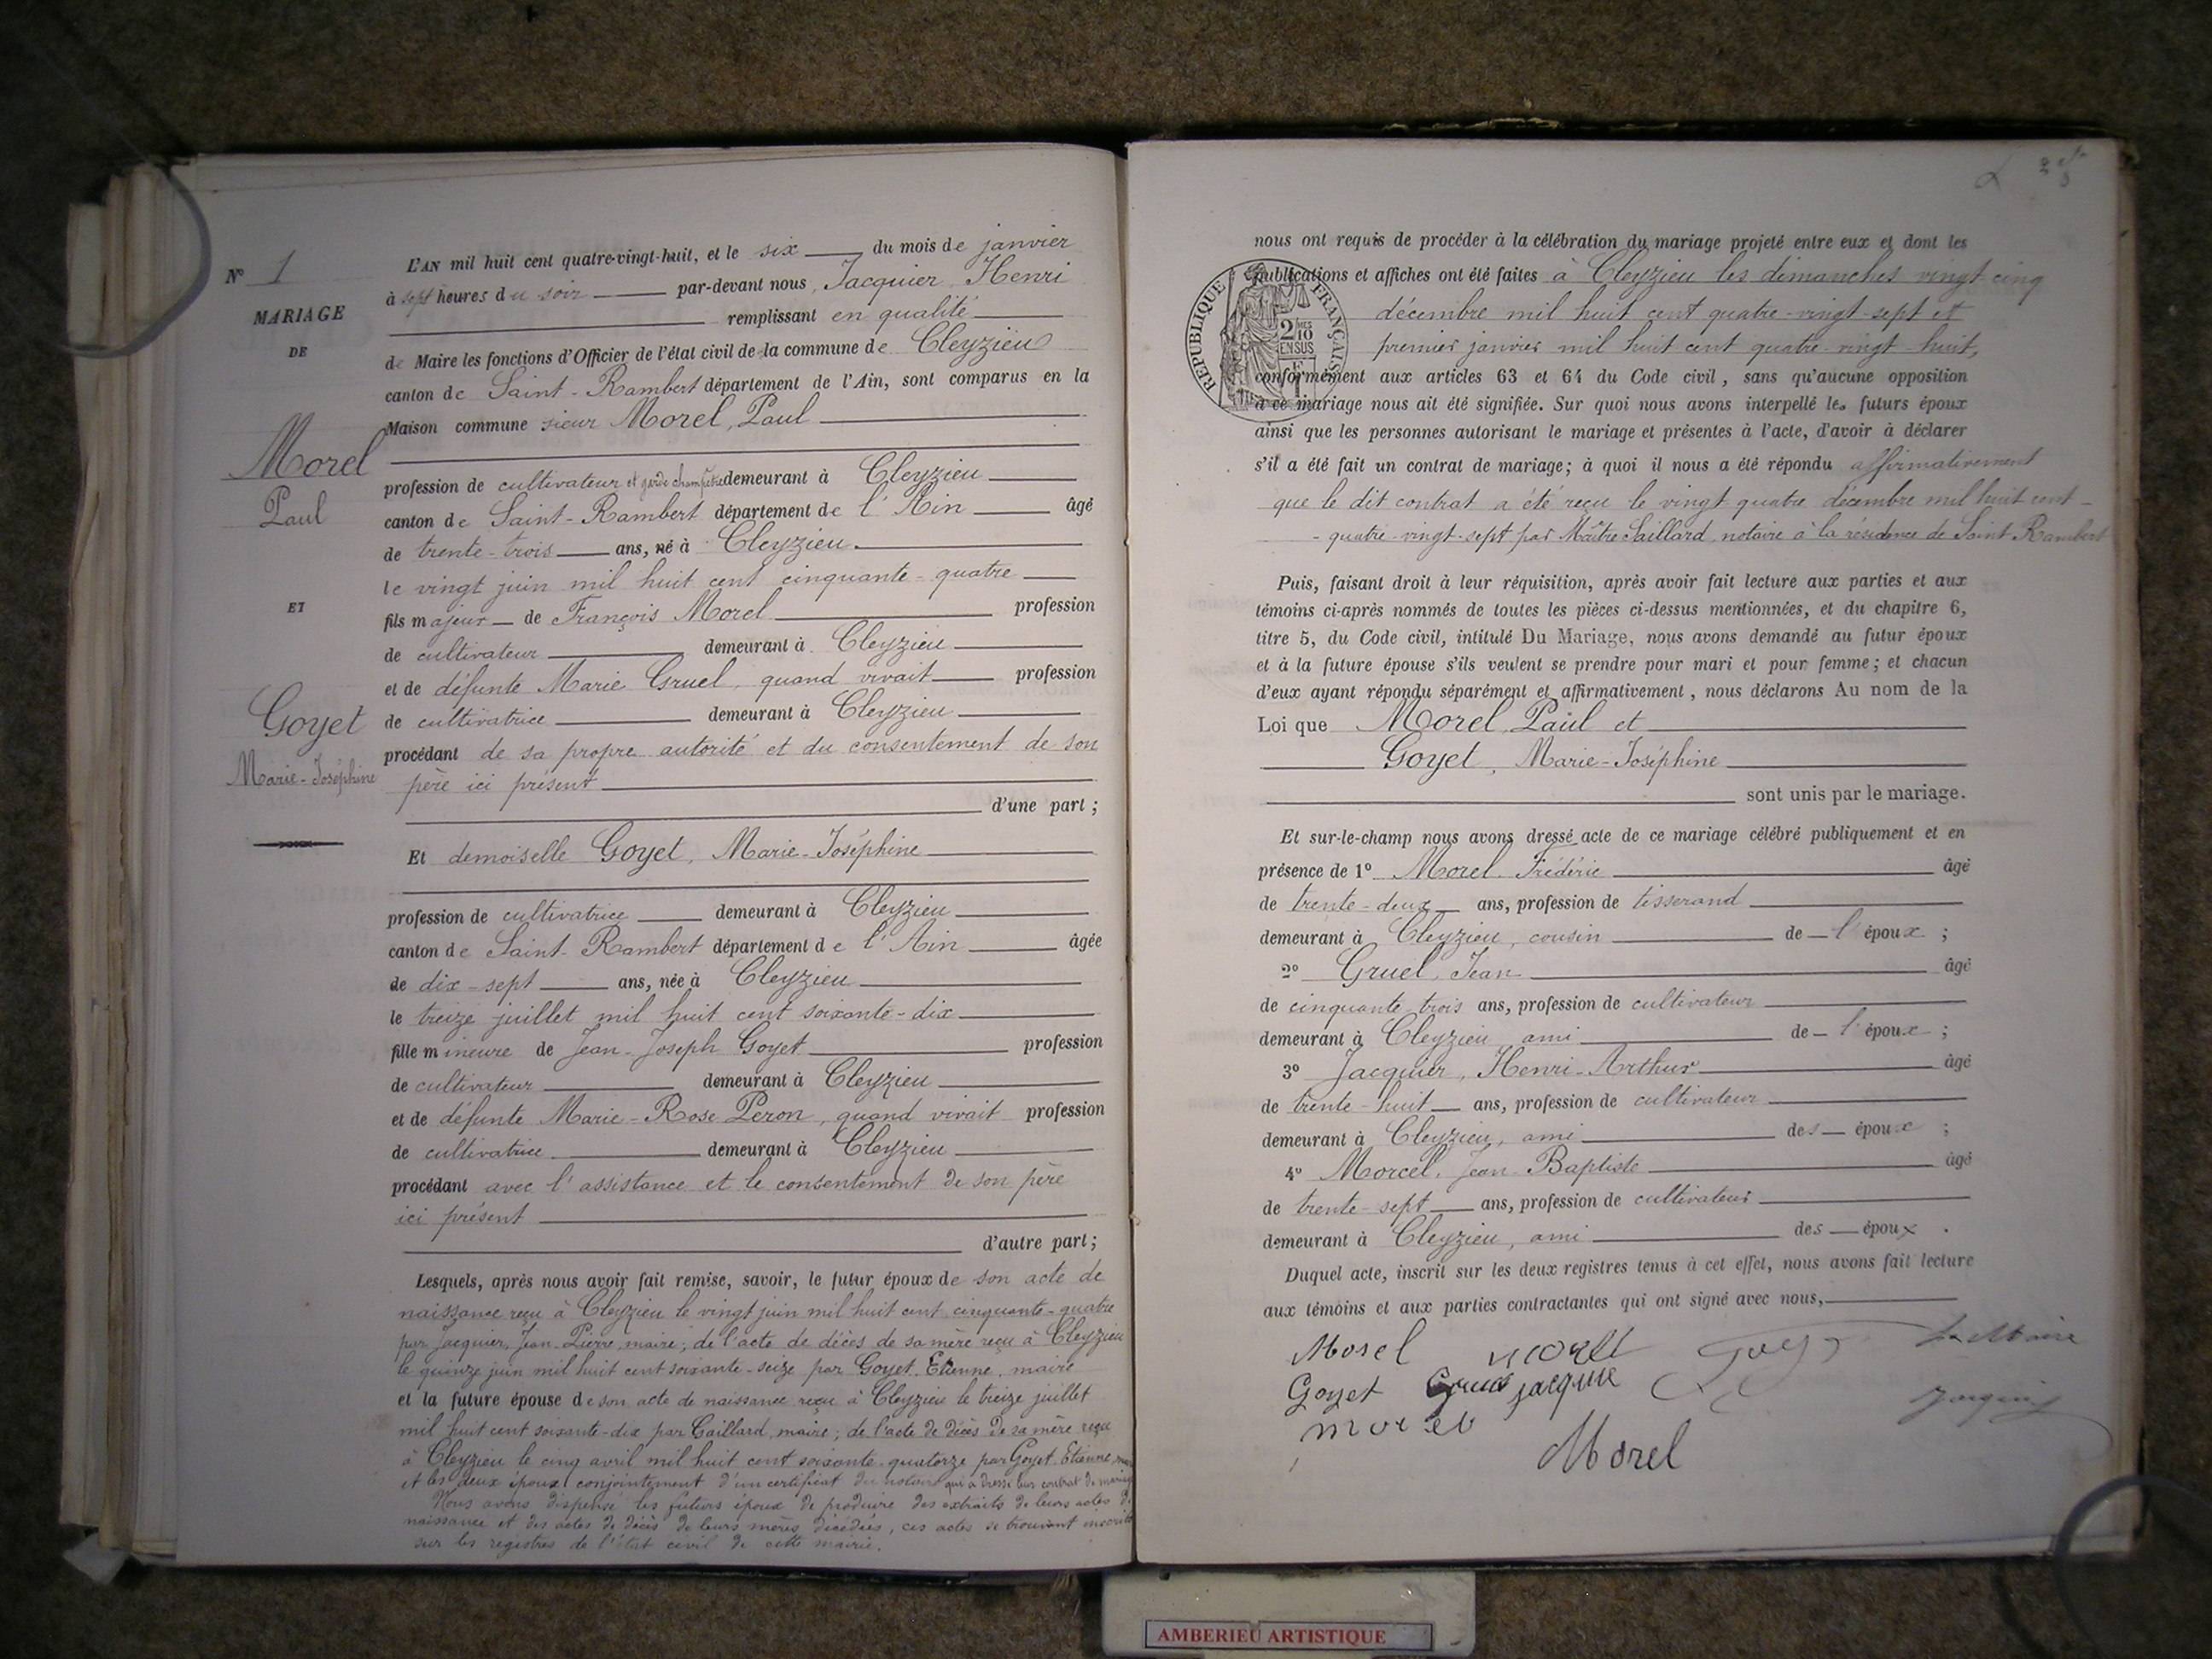 N° 1
MARIAGE
DE
Morel
Paul
ET
Goyet
Marie-Joséphine
L'AN mil huit cent quatre-vingt-huit, et le six du mois de janvier
à sept heures du soir par-devant nous, Jacquier Henri
remplissant en qualité
de Maire les fonctions d'Officier de l'état civil de la commune de Cleyzieu
canton de Saint-Rambert département de l'Ain, sont comparus en la
Maison commune sieur Morel, Paul
profession de cultivateur et garde champêtre demeurant à Cleyzieu
canton de Saint-Rambert département de l'Ain âgé
de trente-trois ans, né à Cleyzieu
le vingt juin mil huit cent cinquante-quatre
fils majeur de François Morel profession
de cultivateur demeurant à Cleyzieu
et de défunte Marie Gruel, quand vivait profession
de cultivatrice demeurant à Cleyzieu
procédant de sa propre autorité et du consentement de son
père ici présent
d'une part ;
Et demoiselle Goyet, Marie-Joséphine
profession de cultivatrice demeurant à Cleyzieu
canton de Saint-Rambert département de l'Ain âgée
de dix-sept ans, née à Cleyzieu
le treize juillet mil huit cent soixante-dix
fille mineure de Jean-Joseph Goyet profession
de cultivateur demeurant à Cleyzieu
et de défunte Marie-Rose Peron, quand vivait profession
de cultivatrice demeurant à Cleyzieu
procédant avec l'assistance et le consentement de son père
ici présent
d'autre part ;
Lesquels, après nous avoir fait remise, savoir, le futur époux de son acte de
naissance reçu à Cleyzieu le vingt juin mil huit cent cinquante-quatre
par Jacquier, Jean-Pierre, maire; de l'acte de décès de sa mère reçu à Cleyzieu
le quinze juin mil huit cent soixante-seize par Goyet Etienne, maire
et la future épouse de son acte de naissance reçu à Cleyzieu le treize juillet
mil huit cent soixante-dix par Gaillard, maire; de l'acte de décès de sa mère reçu
à Cleyzieu le cinq avril mil huit cent soixante-quatorze par Goyet Etienne,
et les deux époux conjointement d'un certificat du notaire qui a dressé leur contrat de mariage
Nous avons dispensé les futurs époux de produire des extraits de leurs actes de
naissance et des actes de décès de leurs mères décédées, ces actes se trouvant inscrits
sur les registres de l'état civil de cette mairie.
nous ont requis de procéder à la célébration du mariage projeté entre eux et dont les
publications et affiches ont été faites à Cleyzieu les dimanches vingt-cinq
décembre mil huit cent quatre-vingt-sept et
premier janvier mil huit cent quatre-vingt-huit,
RÉPUBLIQUE FRANÇAISE
2 MES 10 EN SUS
conformément aux articles 63 et 64 du Code civil, sans qu'aucune opposition
à ce mariage nous ait été signifiée. Sur quoi nous avons interpellé les futurs époux
ainsi que les personnes autorisant le mariage et présentes à l'acte, d'avoir à déclarer
s'il a été fait un contrat de mariage; à quoi il nous a été répondu affirmativement
que le dit contrat a été reçu le vingt-quatre décembre mil huit cent-
-quatre-vingt-sept par Maître Saillard, notaire à la résidence de Saint-Rambert
Puis, faisant droit à leur réquisition, après avoir fait lecture aux parties et aux
témoins ci-après nommés de toutes les pièces ci-dessus mentionnées, et du chapitre 6,
titre 5, du Code civil, intitulé Du Mariage, nous avons demandé au futur époux
et à la future épouse s'ils veulent se prendre pour mari et pour femme; et chacun
d'eux ayant répondu séparément et affirmativement, nous déclarons Au nom de la
Loi que Morel, Paul et
Goyet, Marie-Joséphine
sont unis par le mariage.
Et sur-le-champ nous avons dressé acte de ce mariage célébré publiquement et en
présence de 1° Morel. Frédéric âgé
de trente-deux ans, profession de tisserand
demeurant à Cleyzieu, cousin de l'époux ;
2° Gruel, Jean âgé
de cinquante trois ans, profession de cultivateur
demeurant à Cleyzieu ami de l'époux ;
3° Jacquier, Henri-Arthur âgé
de trente-huit ans, profession de cultivateur
demeurant à Cleyzieu, ami des époux ;
4° Morcel, Jean-Baptiste âgé
de trente-sept ans, profession de cultivateur
demeurant à Cleyzieu, ami des époux .
Duquel acte, inscrit sur les deux registres tenus à cet effet, nous avons fait lecture
aux témoins et aux parties contractantes qui ont signé avec nous,
Morel Goyet Le Maire
Goyet Gruel jacquie Jacquier
morel
Morel
AMBERIEU ARTISTIQUE